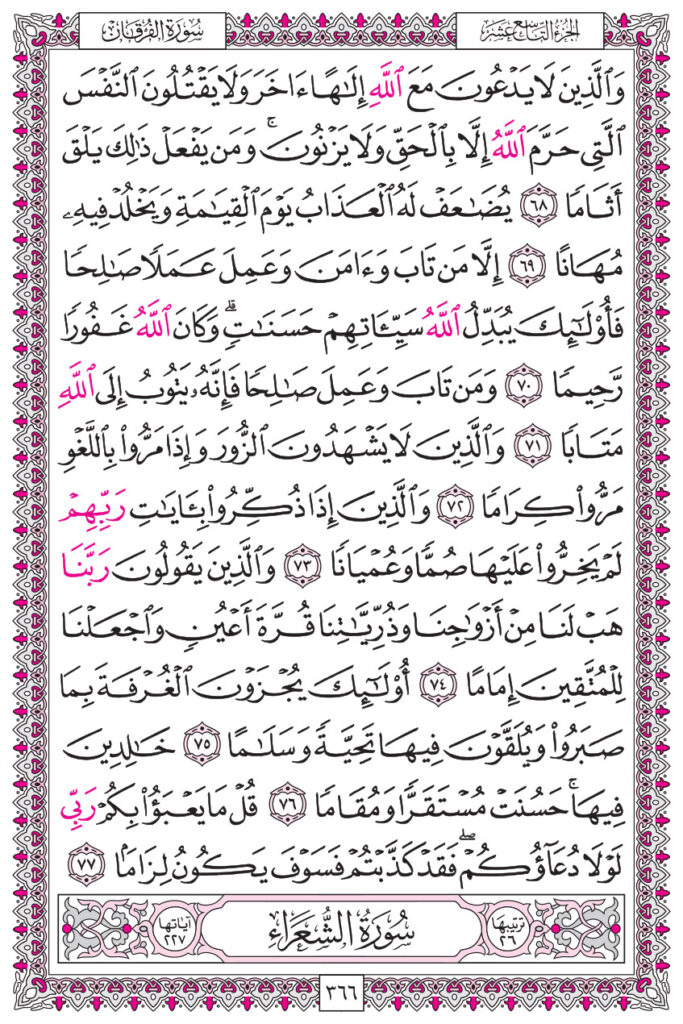 سُورَةُ الفُرْقَانِ
الجُزْءُ التَّاسِعَ عَشَرَ
وَٱلَّذِينَ لَا يَدْعُونَ مَعَ ٱللَّهِ إِلَٰهًا ءَاخَرَ وَلَا يَقْتُلُونَ ٱلنَّفْسَ
ٱلَّتِي حَرَّمَ ٱللَّهُ إِلَّا بِٱلْحَقِّ وَلَا يَزْنُونَۚ وَمَن يَفْعَلْ ذَٰلِكَ يَلْقَ
أَثَامًا ٦٨ يُضَٰعَفْ لَهُ ٱلْعَذَابُ يَوْمَ ٱلْقِيَٰمَةِ وَيَخْلُدْ فِيهِۦ
مُهَانًا ٦٩ إِلَّا مَن تَابَ وَءَامَنَ وَعَمِلَ عَمَلًا صَٰلِحًا
فَأُوْلَٰٓئِكَ يُبَدِّلُ ٱللَّهُ سَيِّـَٔاتِهِمْ حَسَنَٰتٍۗ وَكَانَ ٱللَّهُ غَفُورًا
رَّحِيمًا ٧٠ وَمَن تَابَ وَعَمِلَ صَٰلِحًا فَإِنَّهُۥ يَتُوبُ إِلَى ٱللَّهِ
مَتَابًا ٧١ وَٱلَّذِينَ لَا يَشْهَدُونَ ٱلزُّورَ وَإِذَا مَرُّوا۟ بِٱللَّغْوِ
مَرُّوا۟ كِرَامًا ٧٢ وَٱلَّذِينَ إِذَا ذُكِّرُوا۟ بِـَٔايَٰتِ رَبِّهِمْ
لَمْ يَخِرُّوا۟ عَلَيْهَا صُمًّا وَعُمْيَانًا ٧٣ وَٱلَّذِينَ يَقُولُونَ رَبَّنَا
هَبْ لَنَا مِنْ أَزْوَٰجِنَا وَذُرِّيَّٰتِنَا قُرَّةَ أَعْيُنٍ وَٱجْعَلْنَا
لِلْمُتَّقِينَ إِمَامًا ٧٤ أُوْلَٰٓئِكَ يُجْزَوْنَ ٱلْغُرْفَةَ بِمَا
صَبَرُوا۟ وَيُلَقَّوْنَ فِيهَا تَحِيَّةً وَسَلَٰمًا ٧٥ خَٰلِدِينَ
فِيهَاۚ حَسُنَتْ مُسْتَقَرًّا وَمُقَامًا ٧٦ قُلْ مَا يَعْبَؤُا۟ بِكُمْ رَبِّي
لَوْلَا دُعَآؤُكُمْۖ فَقَدْ كَذَّبْتُمْ فَسَوْفَ يَكُونُ لِزَامًۢا ٧٧
ترتيبها
٢٦
سُورَةُ الشُّعَرَاءِ
آياتها
٢٢٧
٣٦٦